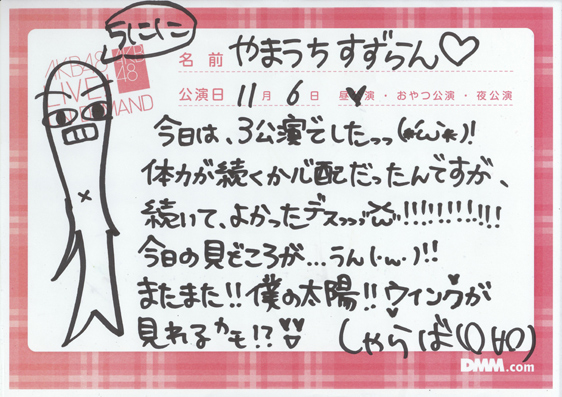 うににに
AKB48
LIVE!!
ON DEMAND
AKB
48
名前 やまうちすずらん♡
公演日 11月6日 昼公演・おやつ公演・夜公演
今日は、3公演でしたっっ(*´ω`*)!
体力が続くか心配だったんですが、
続いて、よかったデスっっっ!!!!!!!!!
今日の見どころが...うん(・ω・)!!
またまた!!僕の太陽!!ウインクが
見れるかも!?
しゃらば(O∀O)
DMM.com